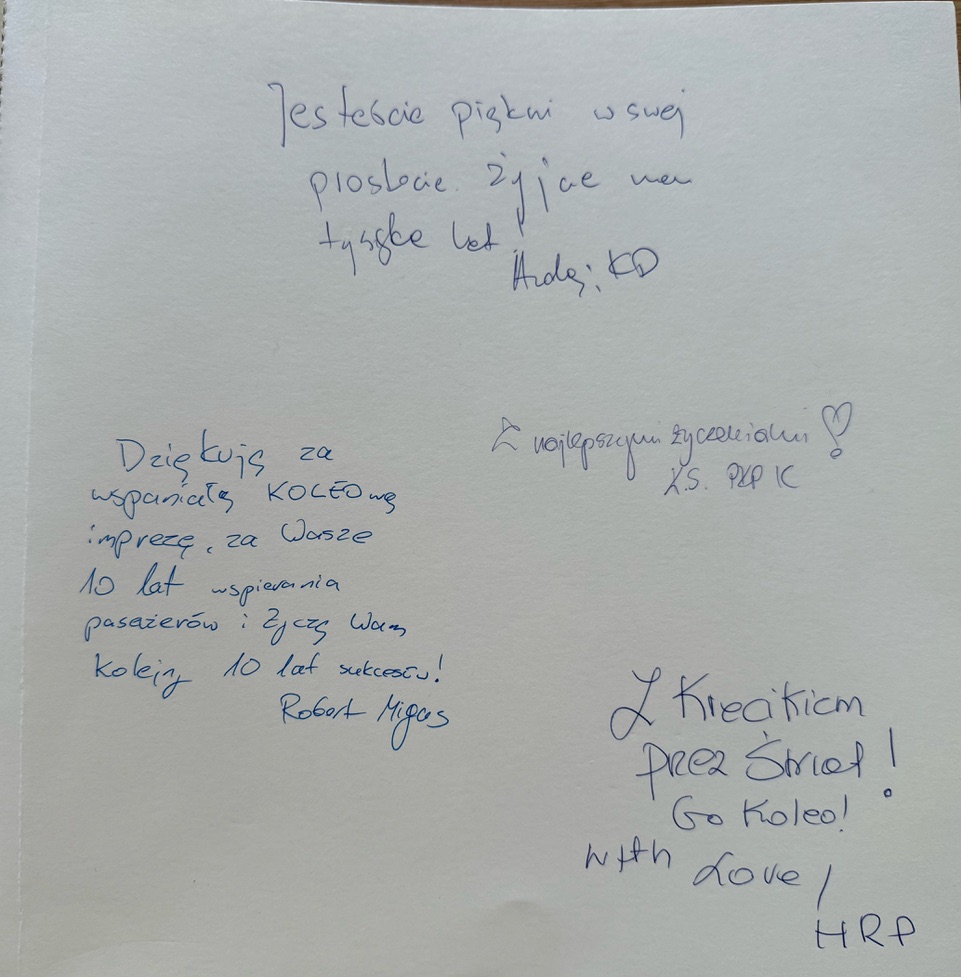 Jesteście piękni w swej
prostocie. Żyjcie nam
tysiące lat!
Andrzej, KD
Dziękuję za
wspaniałą KOLEOwą
imprezę, za Wasze
10 lat wspierania
pasażerów i życzę Wam
kolejny 10 lat sukcesów!
Robert Migas
Z najlepszymi życzeniami
K.S. PKP IC
Z Krecikiem
przez Świat!
Go Koleo!
With Love,
HRP